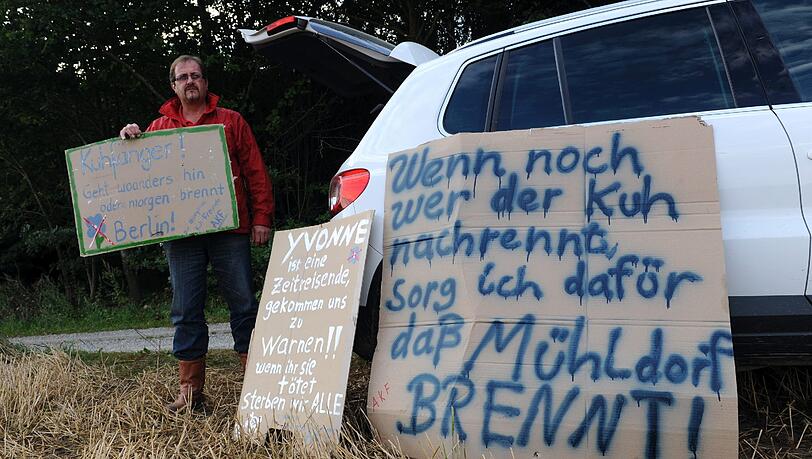 Kuhfänger!
Geht woanders hin
oder morgen brennt
Berlin!
AKF
YVONNE
ist eine
Zeitreisende,
gekommen uns
zu
Warnen!!
wenn ihr sie
tötet
sterben wir ALLE
AKF
Wenn noch
wer der Kuh
nachrennt,
sorg ich dafür
daß Mühldorf
BRENNT!
AKF